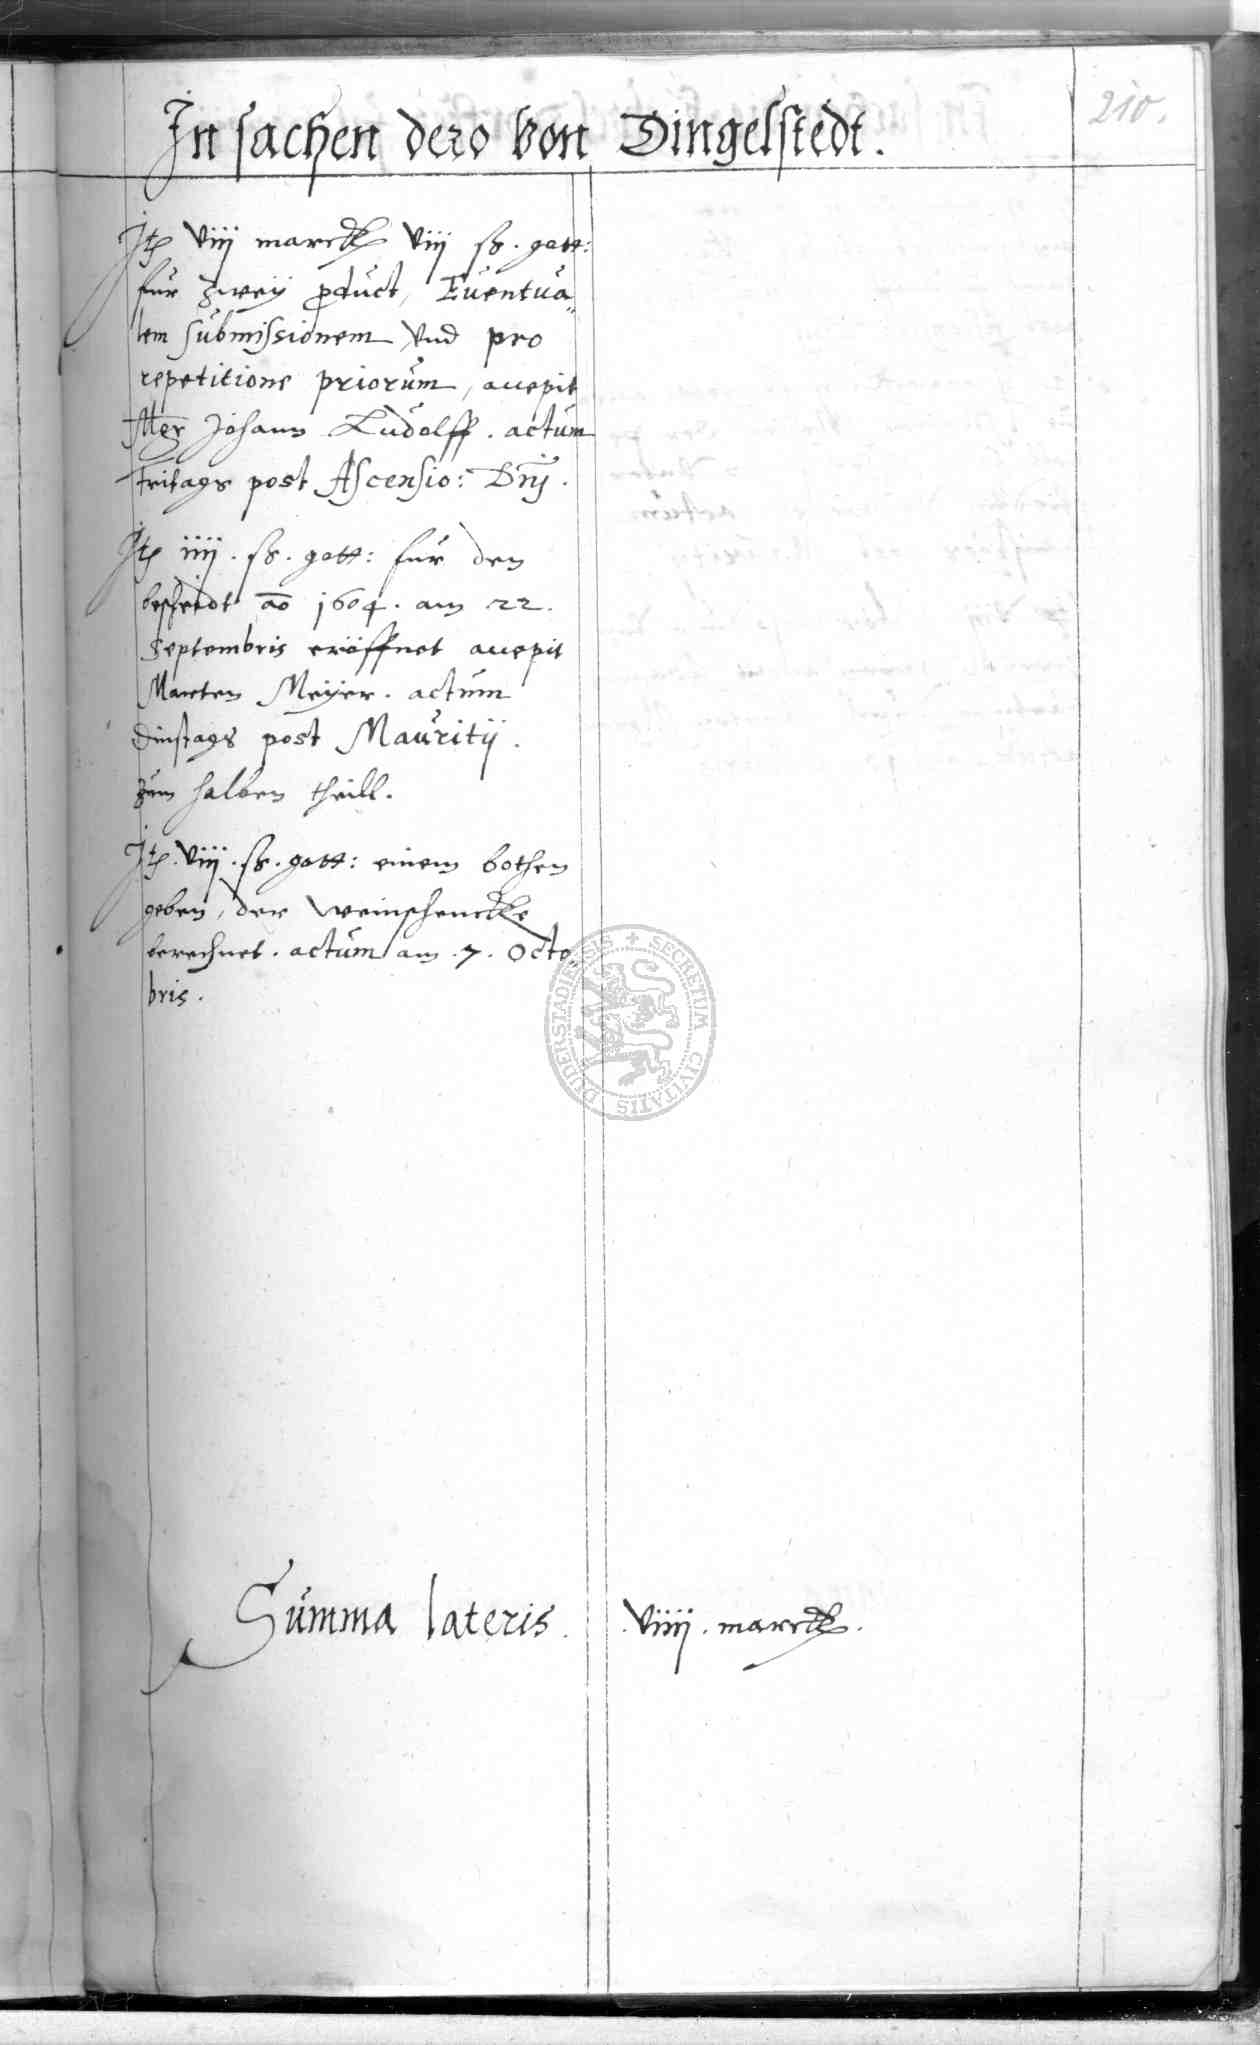 210.
In sachen dero von Dingelstedt.
Itē viij marck viij ß. gott:
für zweӱ product, Eventua„
lem submissionem, vnd pro
repetitione priorum, accepit
Mgr Johann Ludolff. actum
freitags post Ascensio: Dnj.
Itē iiij. ß. gott: für den
bescheidt ao 1604. am 22.
Septembris eröffnet accepit
Marten Meӱer. actum
dinstags post Mauritij.
zum halben theill.
Itē. viij. ß. gott: einem bothen
geben, der weinschencke
berechnet. actum am .7. Octo„
bris.
SECRETUM CIVITATIS DUDERSTADIENSIS
Summa lateris. viiij. marck.